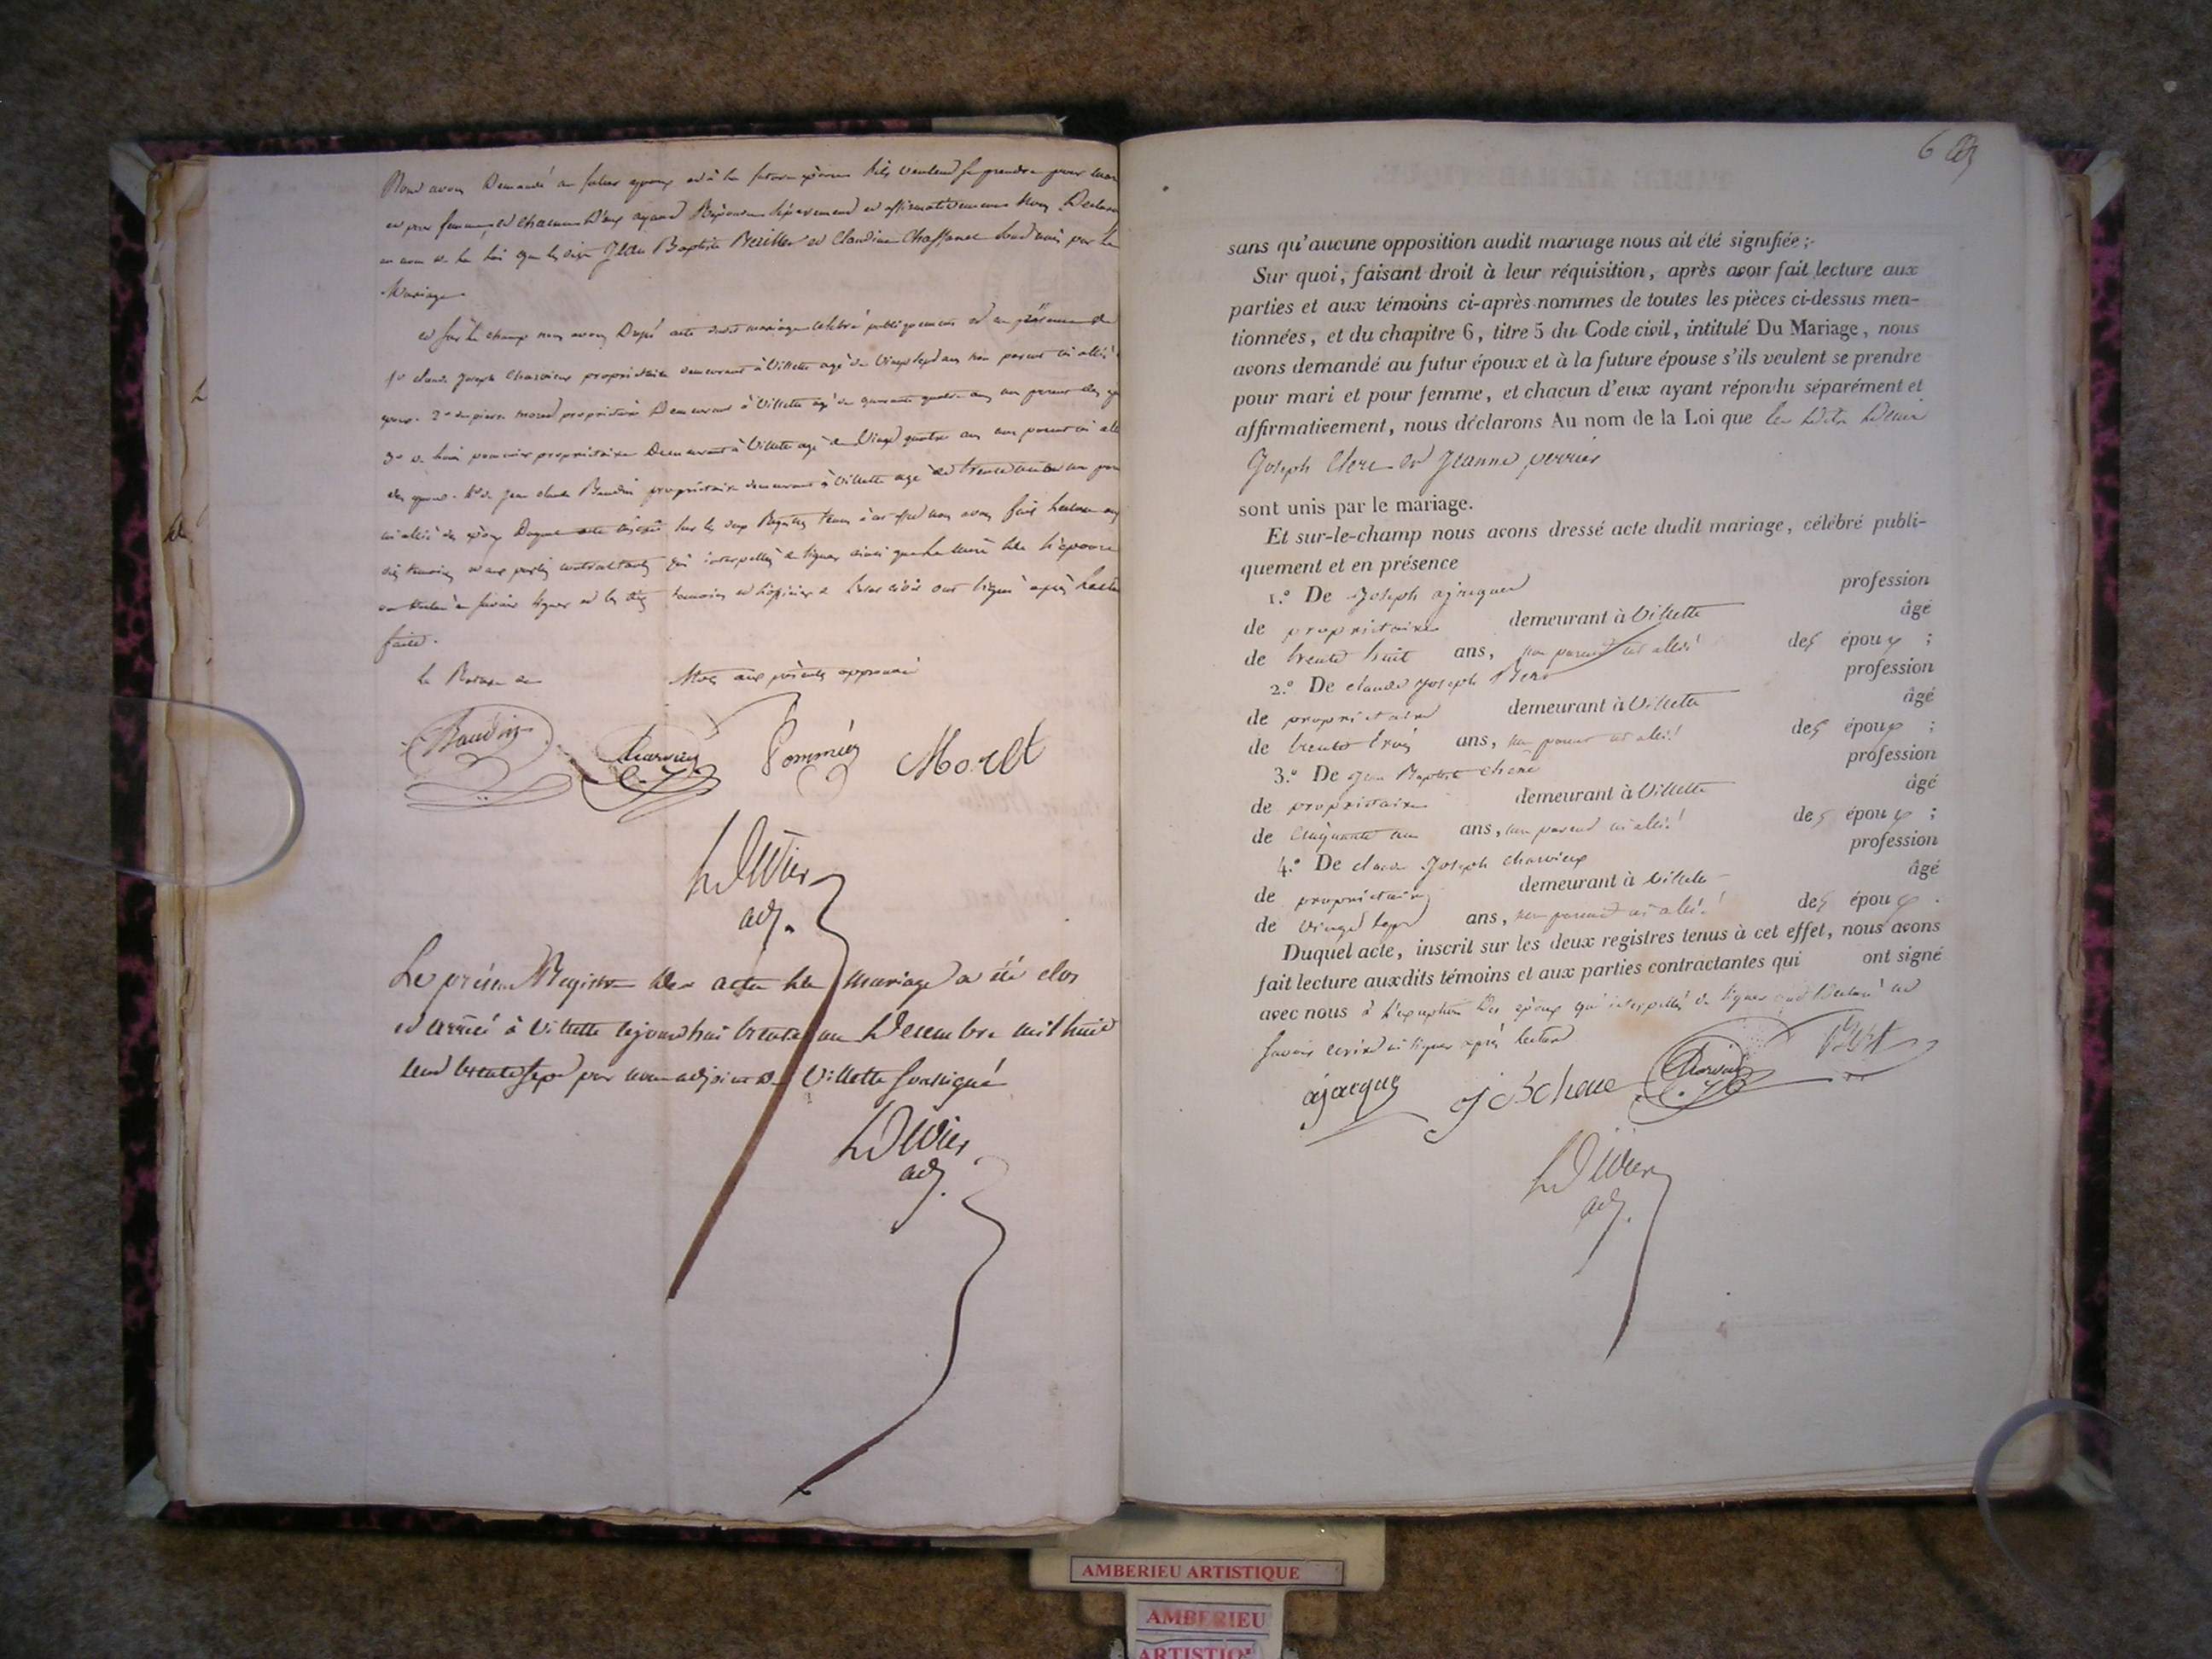 Nous avons Demandé au futur epoux et à la future épouse s'ils veulent se prendre pour mari
et pour femme, et chacun d'eux ayant Répondu séparement et affirmativement Nous Declarons
au nom de la Loi que les dits Jean Baptiste et Claudine sont unis par le
Mariage.
et sur le champ nous avons Dressé acte dudit mariage celebré publiquement et en présence de
1° claude Joseph Charvieux propriétaire demeurant à Villette agé de Vingt sept ans non parent ni allié
epoux. 2° de pierre moret propriétaire Demeurant à Villette agé de quarante quatre ans non parent des
3° de propriétaire Demeurant à Villette agé de Vingt quatre ans non parent ni allié
des epoux. 4° de Jean claude Baudin propriétaire demeurant à Villette agé de trente
ni allié des epoux Duquel acte inscrit sur les deux Registres tenus à cet effet nous avons fait lecture aux
dits temoins et aux parties contractantes qui interpellés de signer ainsi que la mère de l'épouse
savoir signer et les dits temoins et l'officier de l'etat civil ont signé après lecture
faite.
Baudin Charvieux Pommiés Moret
Adj.
Le présent Registre des actes de mariage a été clos
et arrêté à Villette cejourd'hui trente un Decembre mil huit
cent trente sept par nous adjoint de Villette soussigné
adj.
6
sans qu'aucune opposition audit mariage nous ait été signifiée;
Sur quoi, faisant droit à leur réquisition, après avoir fait lecture aux
parties et aux témoins ci-après nommes de toutes les pièces ci-dessus men-
tionnées, et du chapitre 6, titre 5 du Code civil, intitulé Du Mariage, nous
avons demandé au futur époux et à la future épouse s'ils veulent se prendre
pour mari et pour femme, et chacun d'eux ayant répondu séparément et
affirmativement, nous déclarons Au nom de la Loi que
Joseph Clerc et Jeanne perrier
sont unis par le mariage.
Et sur-le-champ nous avons dressé acte dudit mariage, célébré publi-
quement et en présence
1.° De Joseph ajacques profession
de propriétaire demeurant à Villette âgé
de trente huit ans, non parent ni allié des époux ;
2.° De claude Joseph profession
de propriétaire demeurant à Villette âgé
de trente trois ans, non parent ni allié des époux ;
3.° De Jean Baptiste chene profession
de propriétaire demeurant à Villette âgé
de Cinquante un ans, non parent ni allié des époux ;
4.° De claude Joseph charvieux profession
de propriétaire demeurant à Villette âgé
de vingt sept ans, non parent ni allié des époux .
Duquel acte, inscrit sur les deux registres tenus à cet effet, nous avons
fait lecture auxdits témoins et aux parties contractantes qui ont signé
avec nous à l'exception des époux qui interpellés de signer ont declaré ne
savoir ecrire ni signer après lecture
ajacques J b chene Charvieux
adj.
AMBERIEU ARTISTIQUE
AMBERIEU
ARTISTIQUE